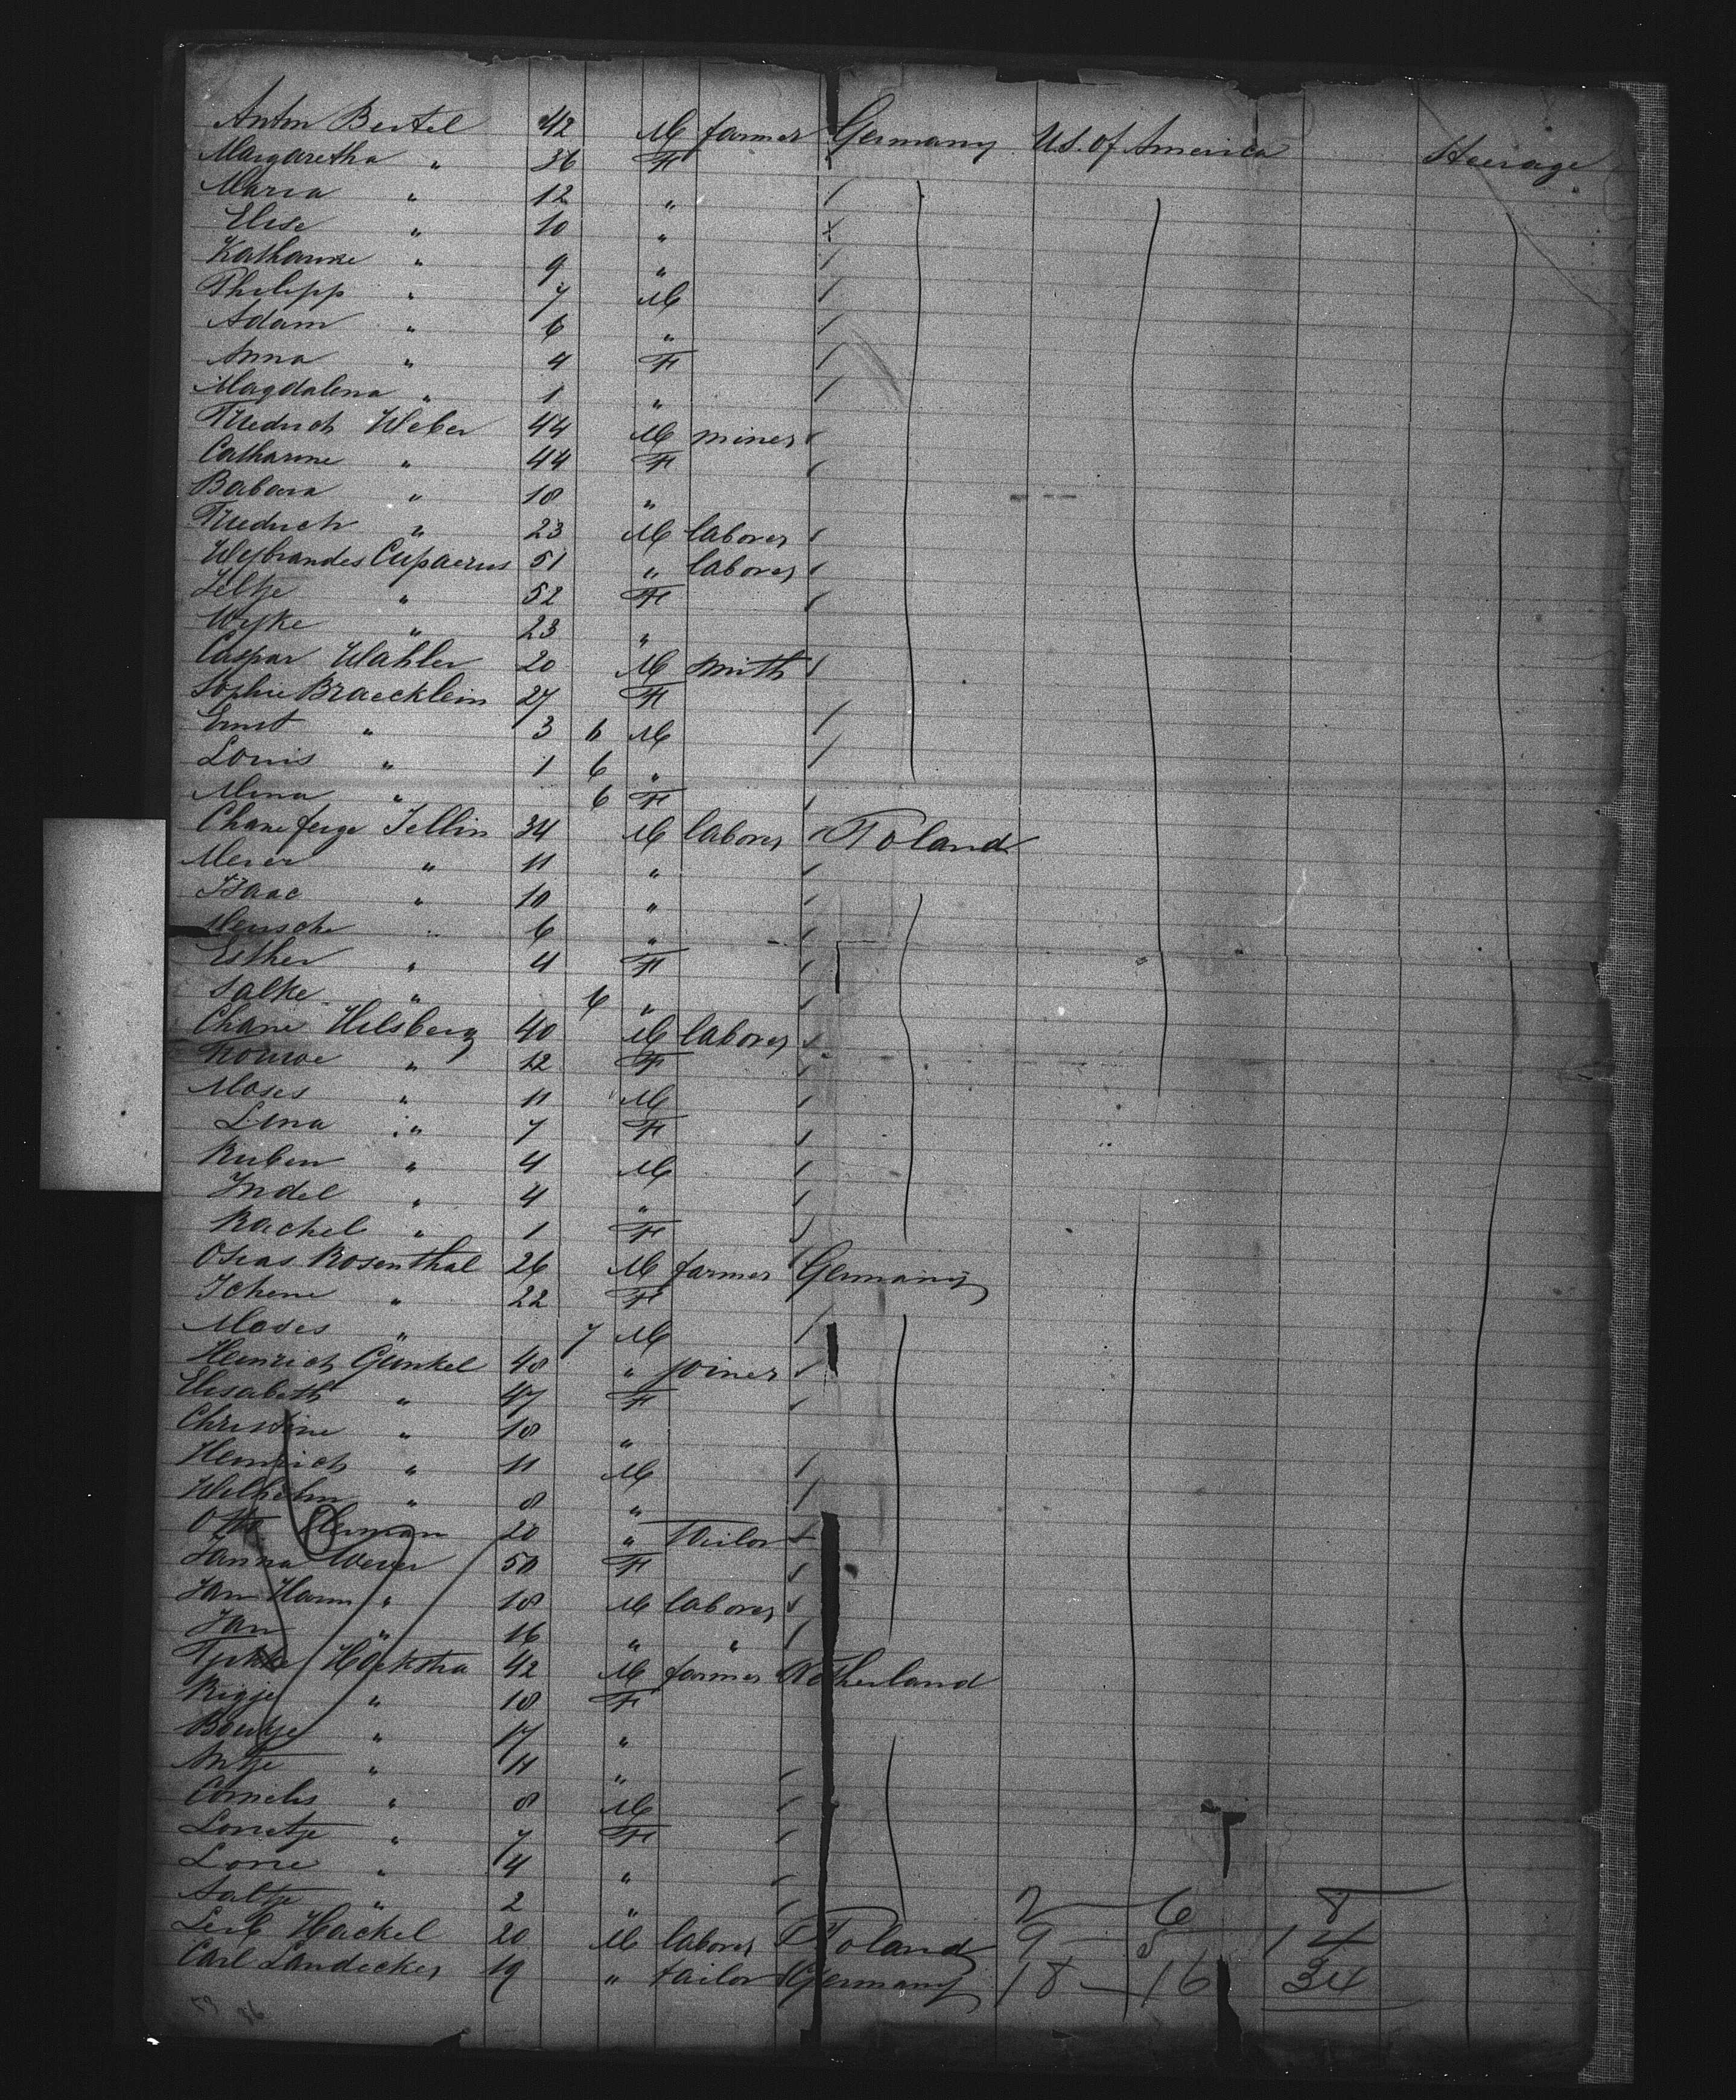 Anton Bertel 42 M farmer Germany U.S. of America Steerage
Margaretha " 36 F
Maria " 12 "
Elise " 10 "
Katharine " 9 "
Philipp " 7 M
Adam " 6 "
Anna " 4 F
Magdalena " 1 "
Friedrich Weber 44 M miner
Catharine " 44 F
Babara " 18 "
Friedrich " 23 M laborer
Weybrandes Cupaerus 51 " laborer
Jeltje " 52 F
Wyke " 23 "
Caspar Wahler 20 M smith
Sophie Braecklein 27 F
Ernst " 3 6 M
Louis " 1 6 "
Mina " 6 F
Chane feige Jellin 34 M laborer Poland
Meier " 11 "
Isaac " 10 "
Mensche " 6 "
Esther " 4 F
Salke " 6 "
Chane Hilsberg 40 M laborer
" 12 F
Moses " 11 M
Lina " 7 F
Ruben " 4 M
Judel " 4 "
Rachel " 1 F
Osias Rosenthal 26 M farmer Germany
Ichene " 22 F
Moses " 7 M
Heinrich Gunkel 48 " joiner
Elisabeth " 47 F
Christine " 18 "
Heinrich " 11 M
Wilhelm " 8 "
Otto 20 " tailor
Janna Wever 50 F
Jan Harm " 18 M laborer
Jan " 16 " "
Hoekstra 42 M farmer Netherland
Rigje " 18 F
Boukje " 17 "
Antje " 11 "
Cornelis " 8 M
" 7 F
" 4 "
Aaltje " 2 "
2 — 6 8
Leib Hackel 20 M laborer Poland 9 — 5 14
Carl Landecker 19 " tailor Germany 18 — 16 34